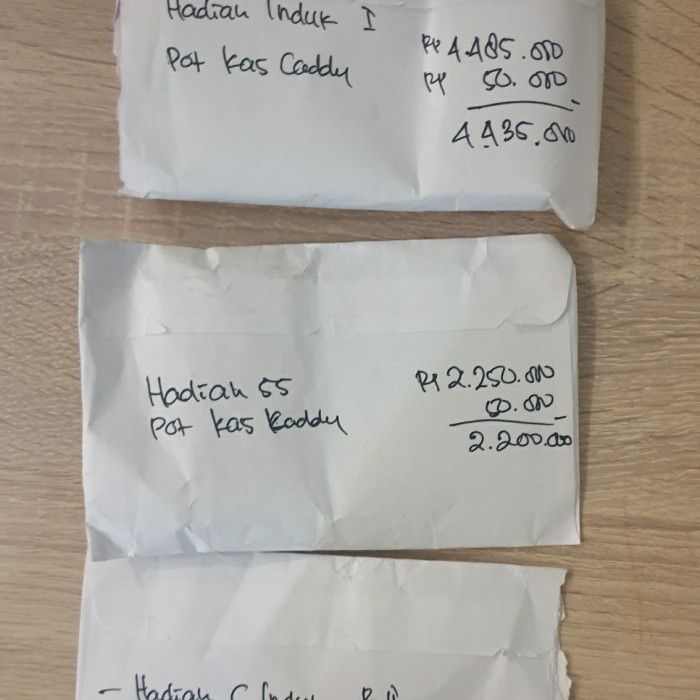 Hadiah Induk I Rp 4.485.000
Pot kas Caddy Rp 50.000
4.435.000
Hadiah 55 Rp 2.250.000
Pot kas Kaddy 50.000
2.200.000
- Hadiah C Induk